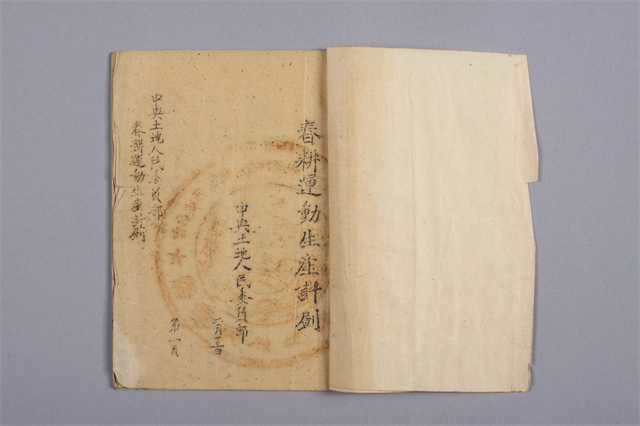 春耕運動生產計劃
中央土地人民委員部
二月
中央土地人民委員部
春耕運動生產計劃
第一頁